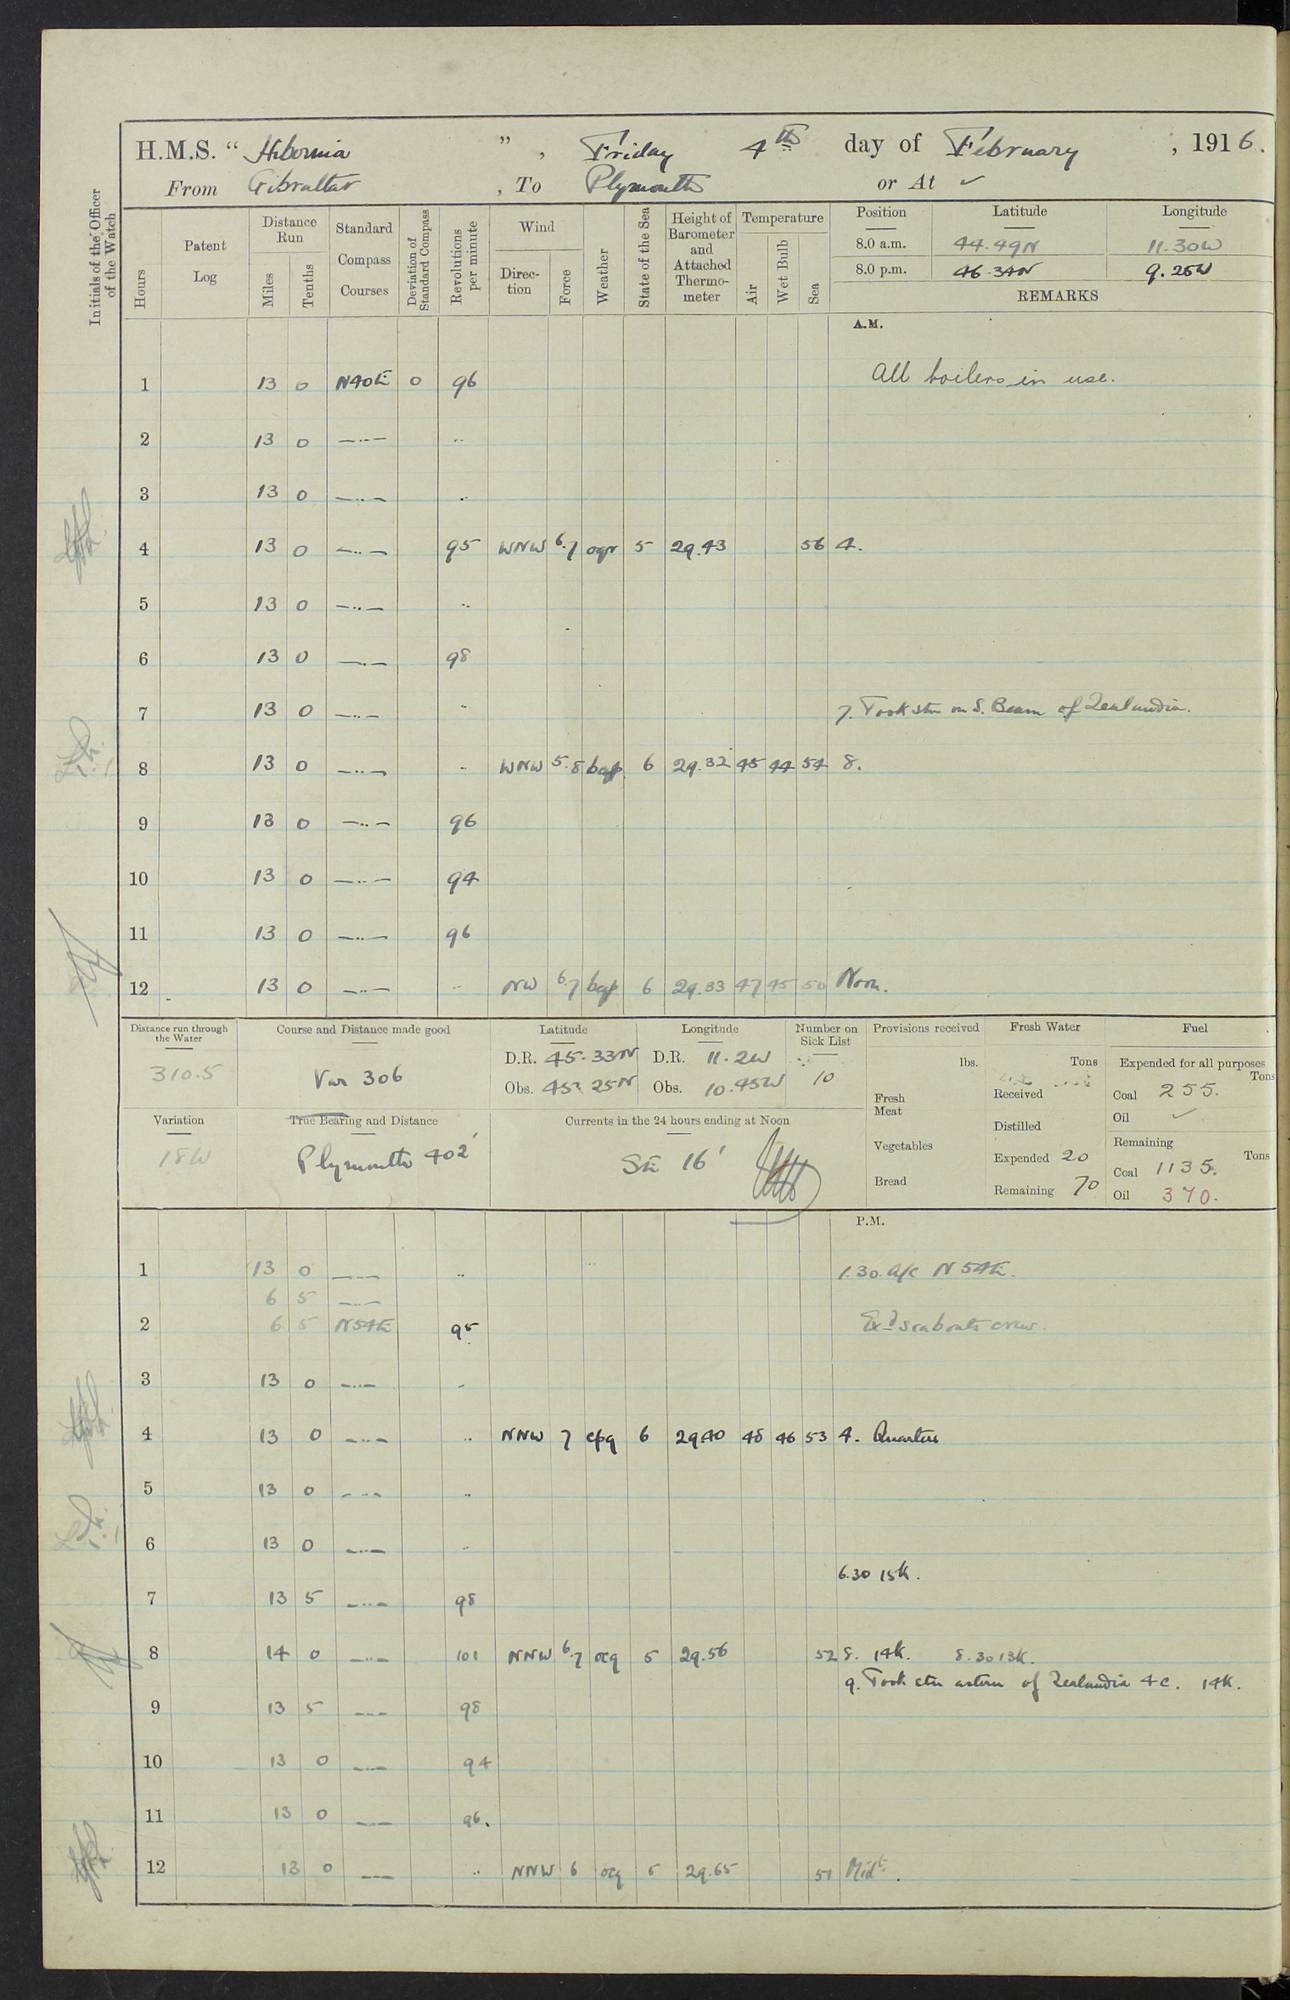 H.M.S. “ Hibernia ” , Friday 4th day of February , 1916.
From Gibraltar , To Plymouth or At ✓
Initials of the Officer of the Watch
Hours
Patent Log
Distance Run
Miles Tenths
Standard Compass Courses
Deviation of Standard Compass
Revolutions per minute
Wind
Direction Force
Weather
State of the Sea
Height of Barometer and Attached Thermometer
Temperature
Air Wet Bulb Sea
Position Latitude Longitude
8.0 a.m. 44.49N 11.30W
8.0 p.m. 46.34N 9.25W
REMARKS
A.M.
1 13 0 N40E 0 96 All boilers in use.
2 13 0 —..— ..
3 13 0 —..— ..
4 13 0 —..— 95 WNW 6.7 oqr 5 29.43 56 4.
5 13 0 —..— ..
6 13 0 —..— 98
7 13 0 —..— .. 7. Took stn on S. Beam of Zealandia.
8 13 0 —..— .. WNW 5.8 bcqp 6 29.32 45 44 54 8.
9 13 0 —..— 96
10 13 0 —..— 94
11 13 0 —..— 96
12 13 0 —..— .. NW 6.7 bcqp 6 29.33 47 45 50 Noon.
Distance run through the Water
310.5
Course and Distance made good
Var 306
Latitude
D.R. 45.33N
Obs. 45. 25N
Longitude
D.R. 11.2W
Obs. 10.45W
Number on Sick List
10
Provisions received
lbs.
Fresh Meat
Vegetables
Bread
Fresh Water
Tons
Received
Distilled
Expended 20
Remaining 70
Fuel
Expended for all purposes
Tons
Coal 255.
Oil ✓
Remaining
Tons
Coal 1135.
Oil 370.
Variation
18W
True Bearing and Distance
Plymouth 402'
Currents in the 24 hours ending at Noon
SE 16'
P.M.
1 13 0 —..— .. 1.30. a/c N54E.
6 5 —..—
2 6 5 N54E 95 Exd seaboats crew.
3 13 0 —..— ..
4 13 0 —..— .. NNW 7 cpq 6 29.40 48 46 53 4. Quarters
5 13 0 —..— ..
6 13 0 —..— ..
6.30 15K.
7 13 5 —..— 98
8 14 0 —..— 101 NNW 6.7 ocq 5 29.56 52 8. 14K. 8.30 13K.
9. Took stn astern of Zealandia &c. 14K.
9 13 5 —..— 98
10 13 0 —..— 94
11 13 0 —..— 96.
12 13 0 —..— .. NNW 6 ocq 5 29.65 51 Midt.